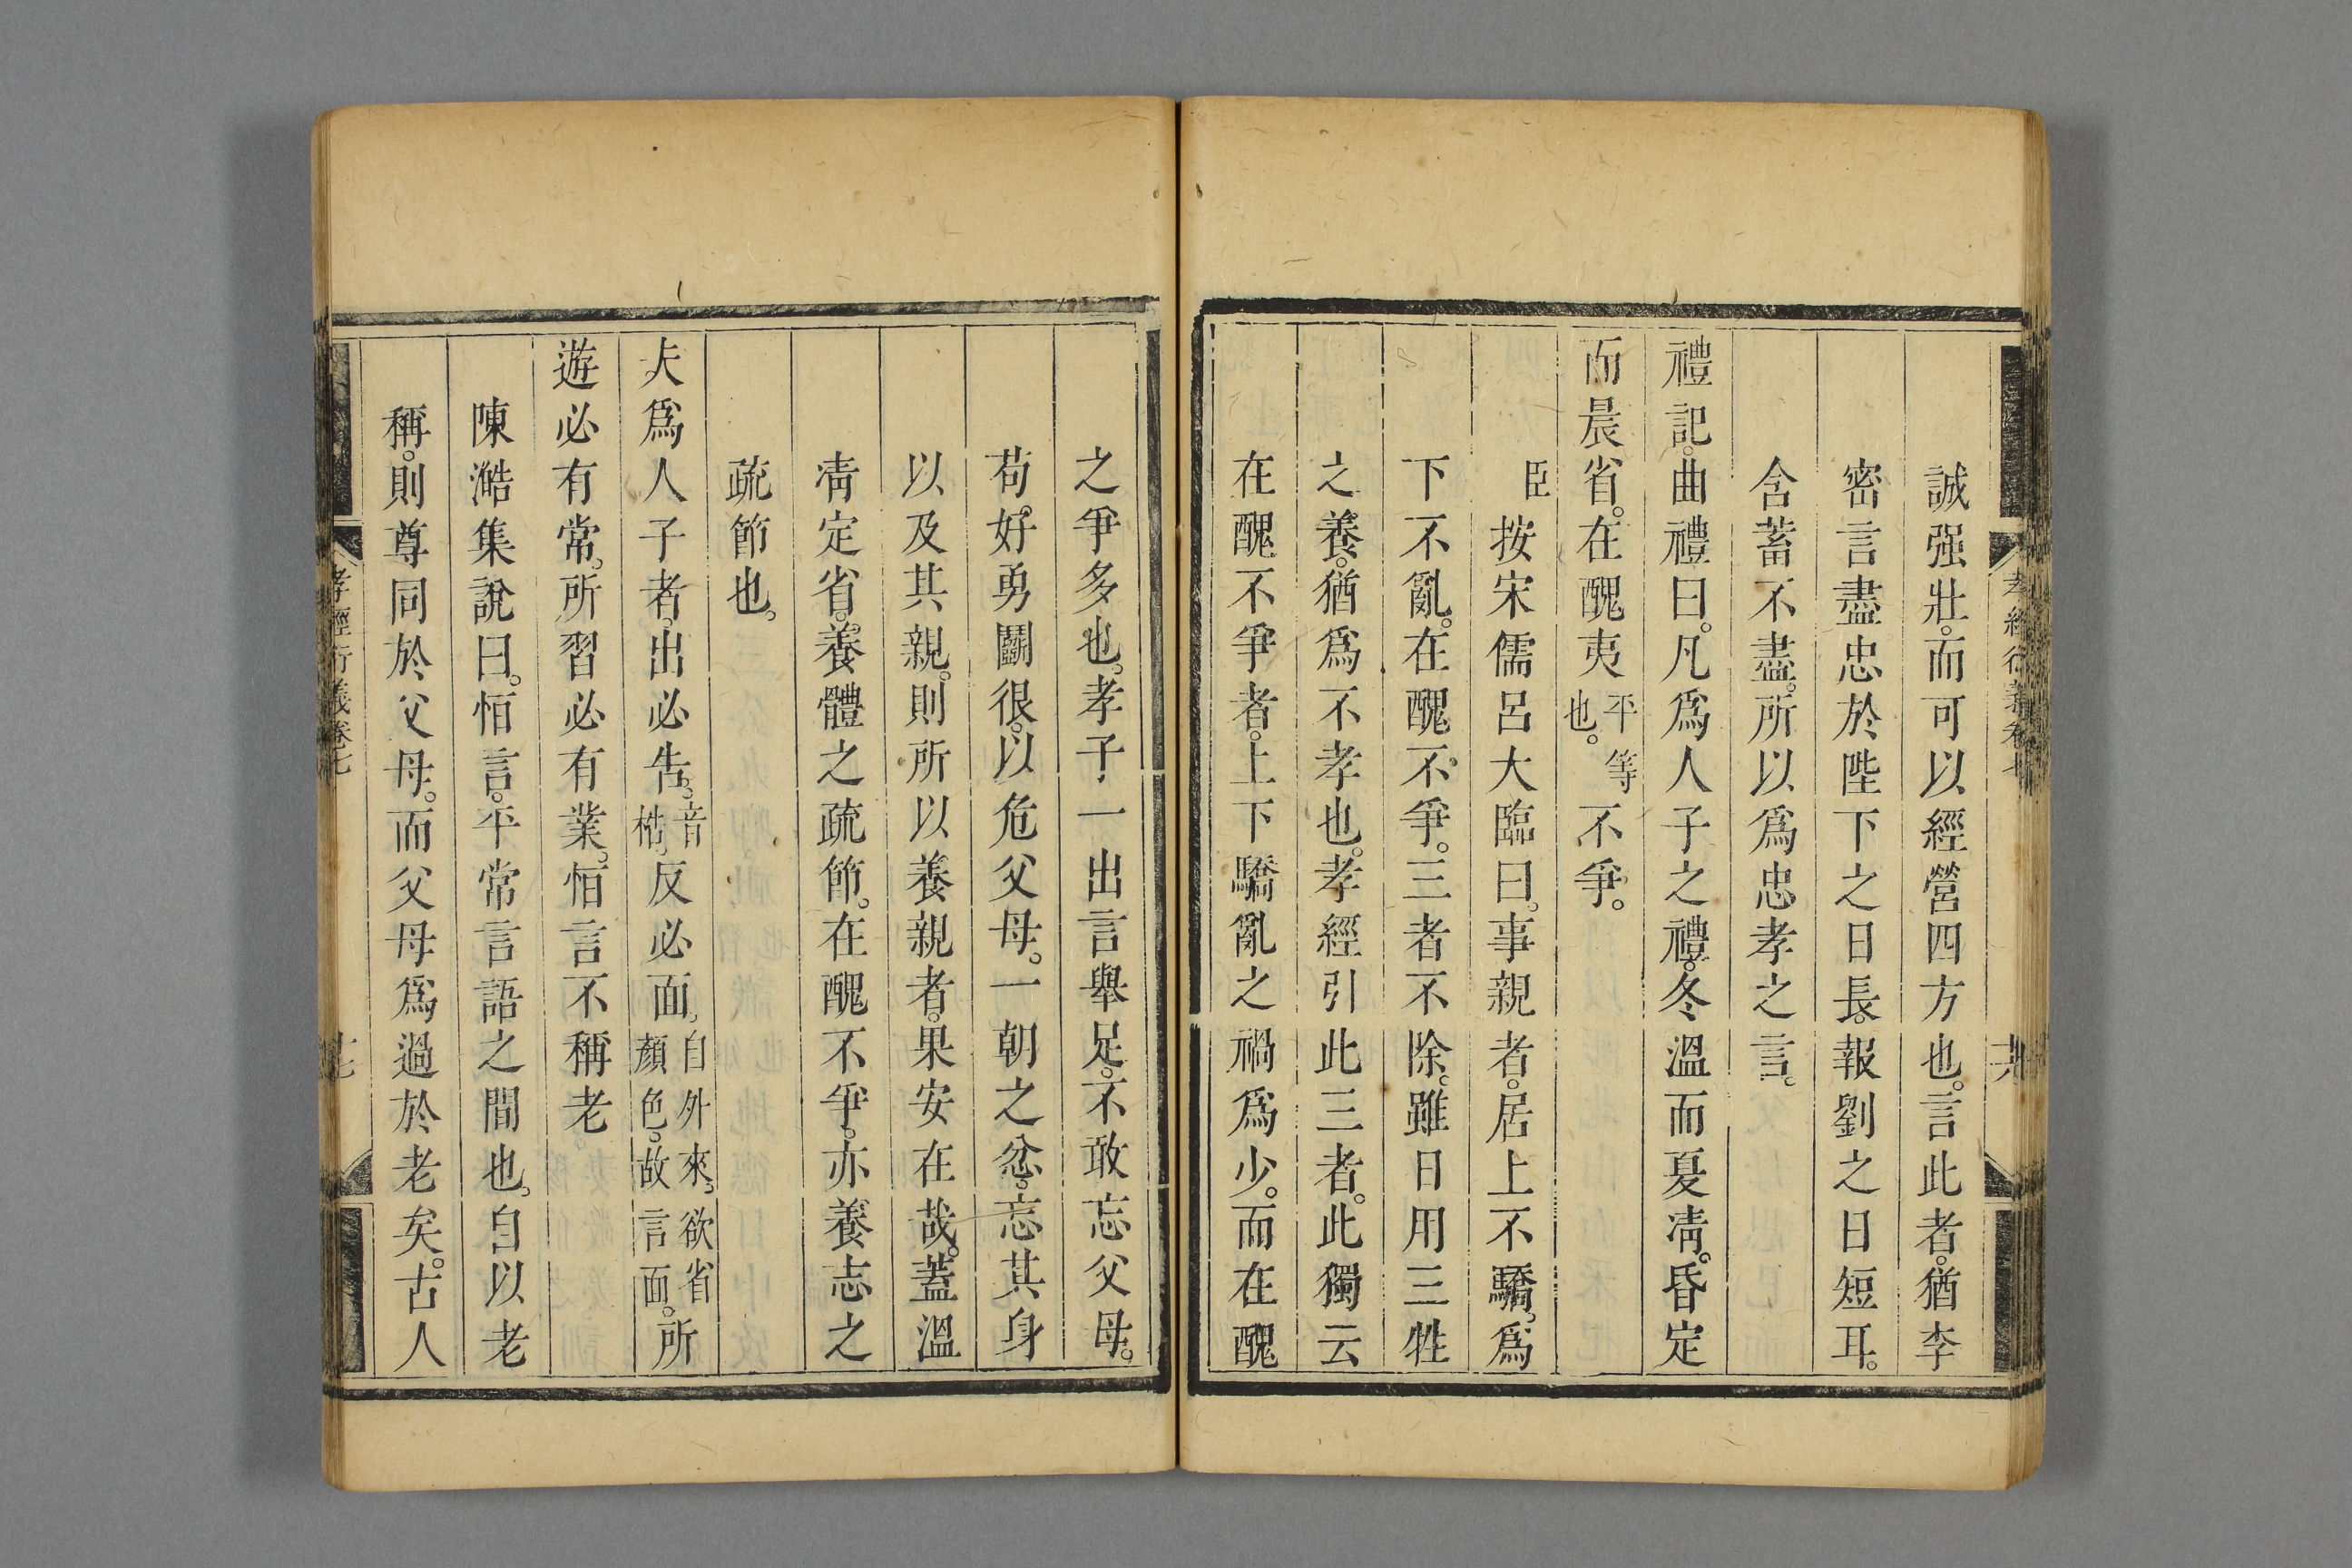 誠强壯。而可以經營四方也。言此者。猶李
密言盡忠於陛下之日長。報劉之日短耳。
含蓄不盡。所以爲忠孝之言。
禮記。曲禮曰。凡爲人子之禮。冬溫而夏凊。昏定
而晨省。在醜夷平等也。不爭。
臣按宋儒呂大臨曰。事親者。居上不驕。爲
下不亂。在醜不爭。三者不除。雖日用三牲
之養。猶爲不孝也。孝經引此三者。此獨云
在醜不爭者。上下驕亂之禍爲少。而在醜
之爭多也。孝子一出言舉足。不敢忘父母。
苟好勇鬬很。以危父母。一朝之忿。忘其身
以及其親。則所以養親者。果安在哉。蓋溫
凊定省。養體之疏節。在醜不爭。亦養志之
疏節也。
夫爲人子者。出必告。音梏。反必面。自外來。欲省顏色。故言面。所
遊必有常。所習必有業。恒言不稱老
陳澔集說曰。恒言。平常言語之間也。自以老
稱。則尊同於父母。而父母爲過於老矣。古人
孝經衍義卷七